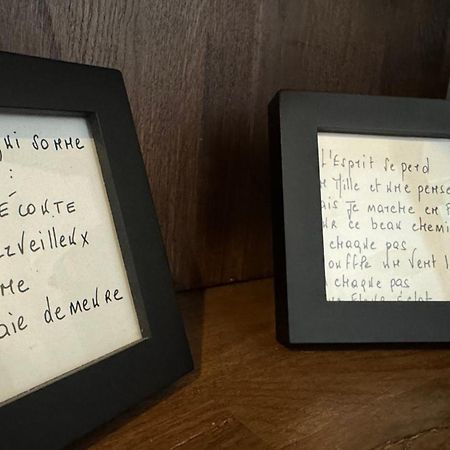 qui somme
:
écoute
rveilleux
me
aie demeure
L'Esprit se perd
Mille et une pense
ais je marche en
ur ce beau chemi
chaque pas
ouffle un vent
à chaque pas